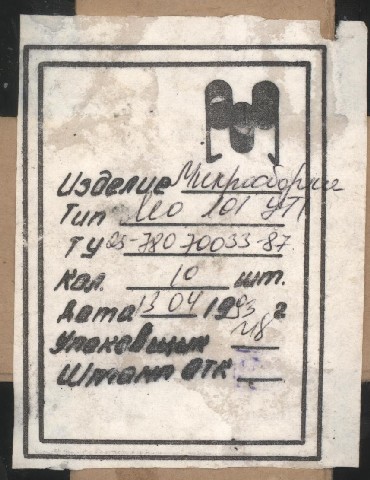 Изделие Микросборка
Тип
ТУ 25-780 70033-87
Кол. 10 шт.
Дата 13 04 1993 г
Упаковщик 718
Штамп ОТК